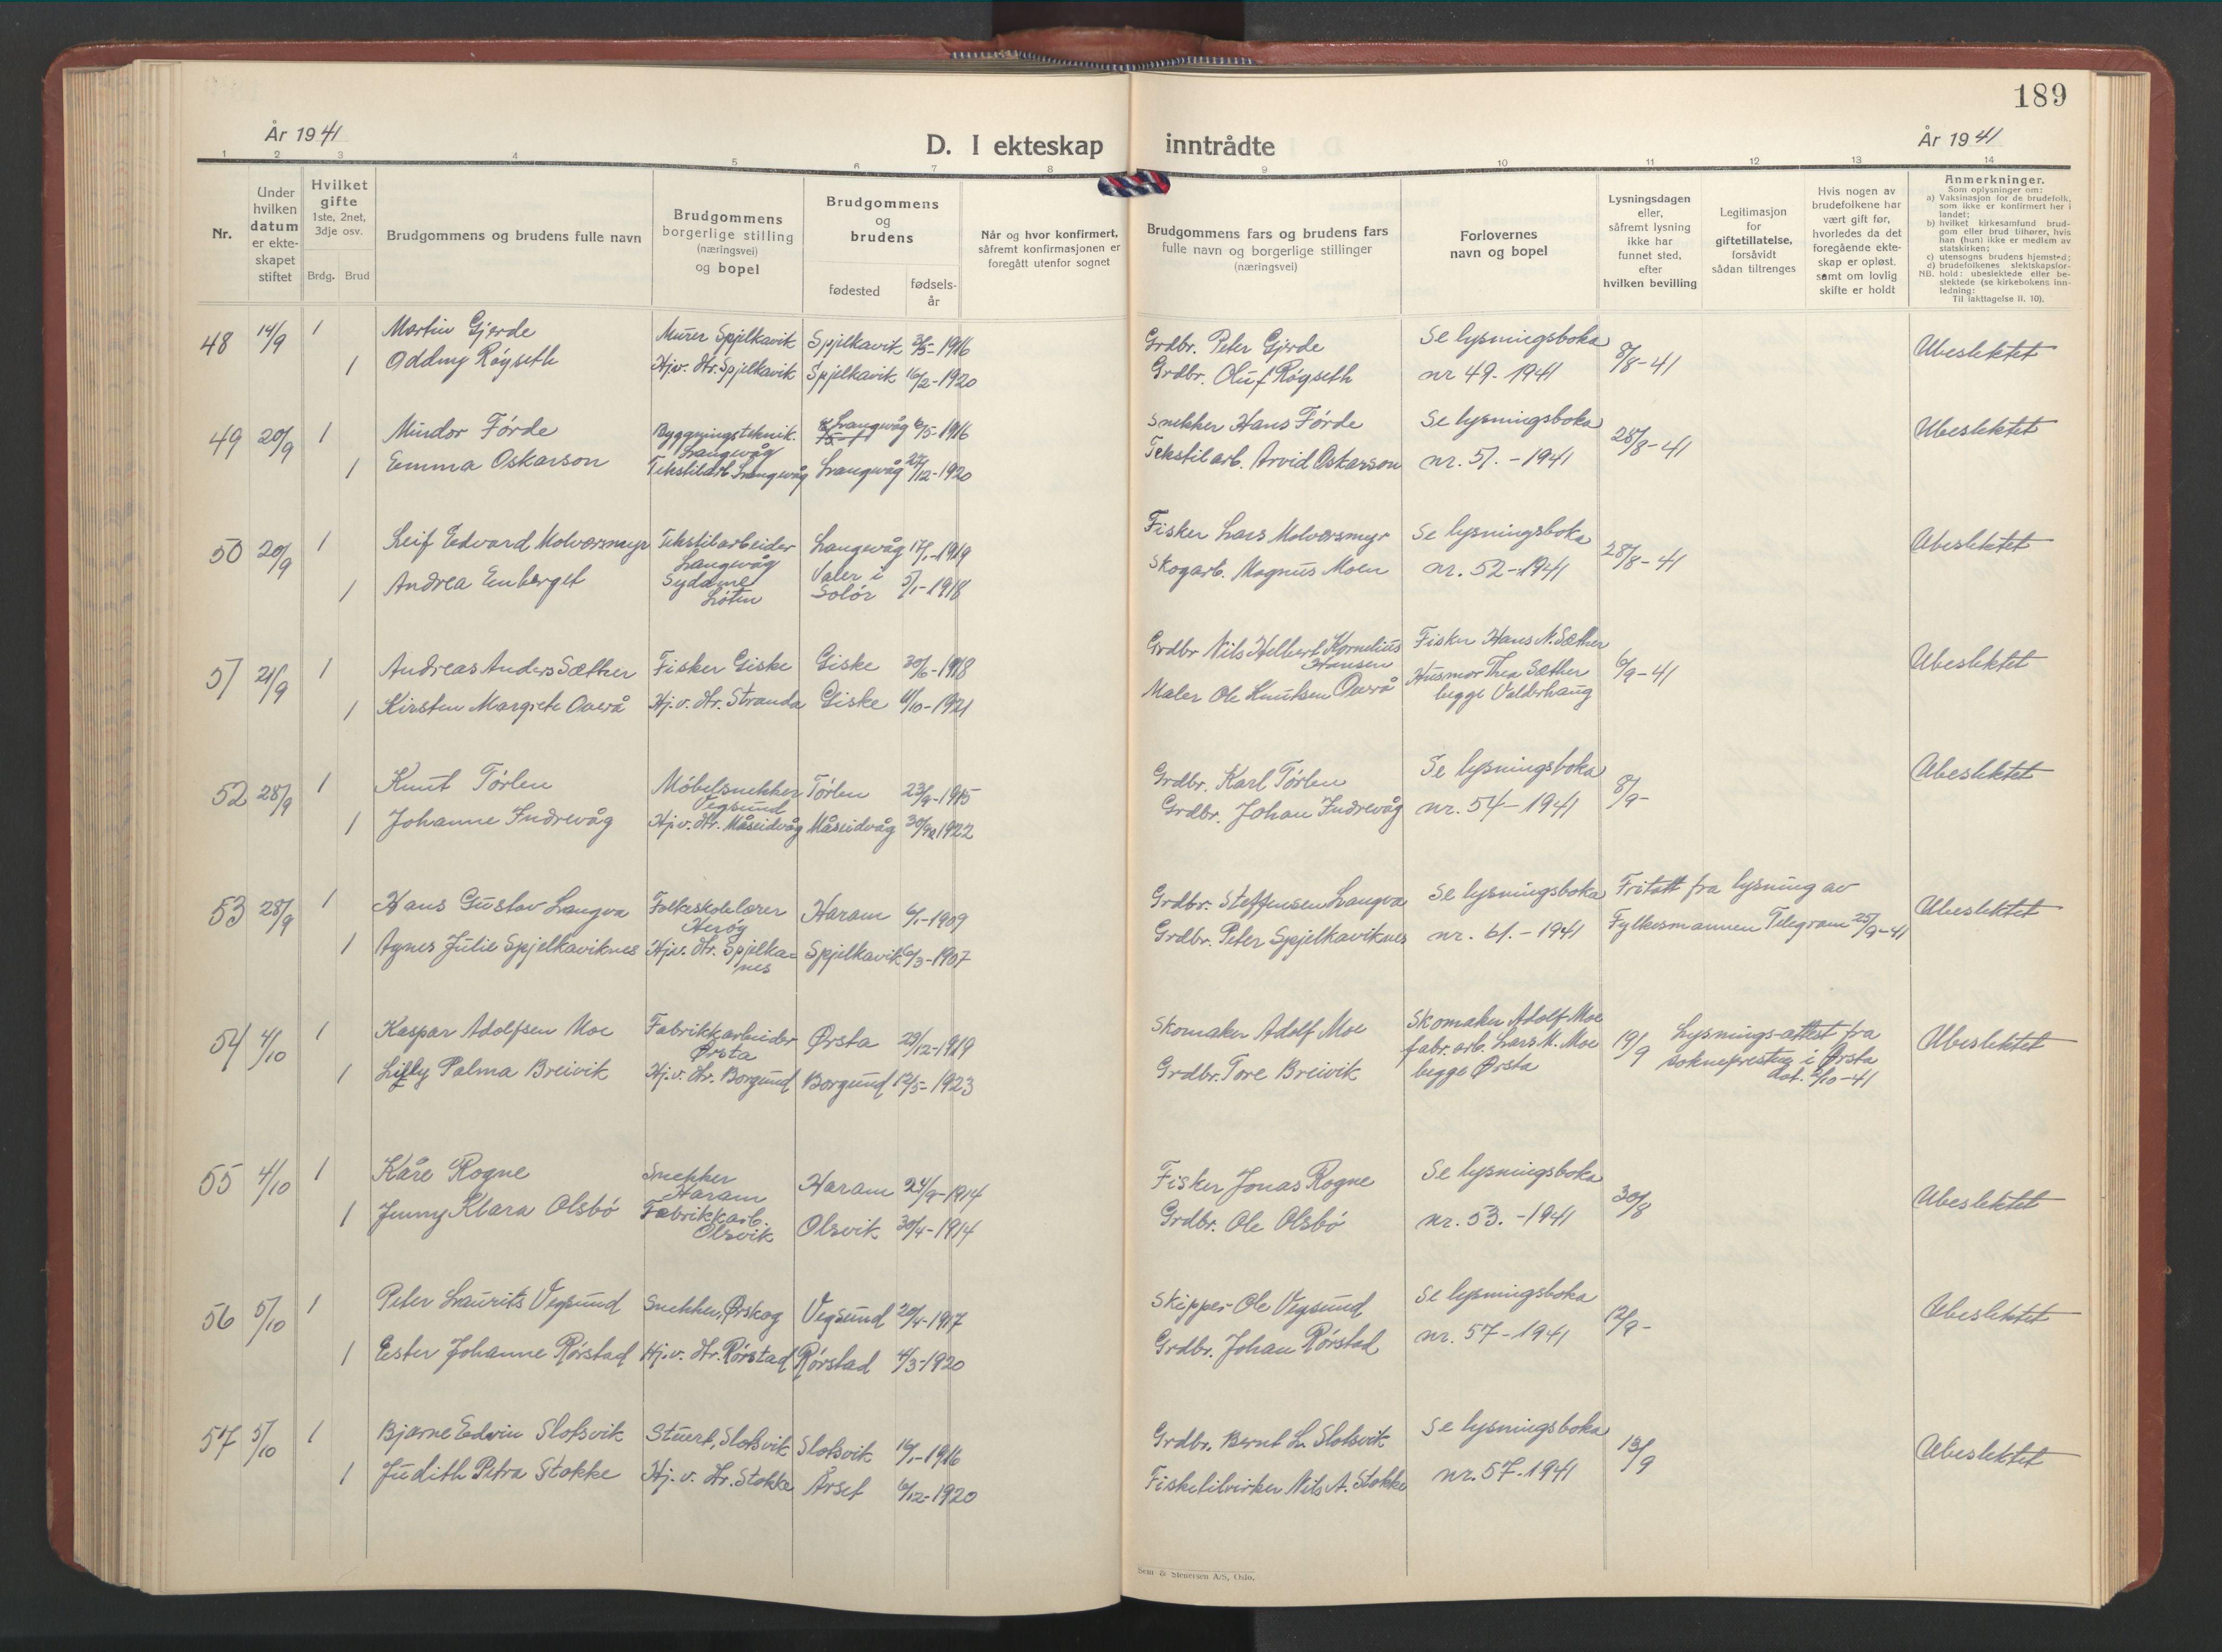 189
År 1941
D. I ekteskap inntrådte
År 1941
1 2 3 4 5 6 7 8 9 10 11 12 13 14
Nr.
Under hvilken datum er ekte-skapet stiftet
Hvilket gifte 1ste, 2net, 3dje osv.
Brdg. Brud
Brudgommens og brudens fulle navn
Brudgommens borgerlige stilling (næringsvei) og bopel
Brudgommens og brudens
fødested
fødsels-år
Når og hvor konfirmert, såfremt konfirmasjonen er foregått utenfor sognet
Brudgommens fars og brudens fars fulle navn og borgerlige stillinger (næringsvei)
Forlovernes navn og bopel
Lysningsdagen eller, såfremt lysning ikke har funnet sted, efter hvilken bevilling
Legitimasjon for giftetillatelse, forsåvidt sådan tiltrenges
Hvis nogen av brudefolkene har vært gift før, hvorledes da det foregående ekte-skap er opløst, samt om lovlig skifte er holdt
Anmerkninger.
Som oplysninger om:
a) Vaksinasjon for de brudefolk, som ikke er konfirmert her i landet;
b) hvilket kirkesamfund brud-gom eller brud tilhører, hvis han (hun) ikke er medlem av statskirken;
c) utensogns brudens hjemsted;
d) brudefolkenes slektskapsfor-hold: ubeslektede eller be-slektede (se kirkebokens inn-ledning:
NB. Til iakttagelse II. 10).
48 14/9 1 Martin Gjerde Murer Spjelkavik Spjelkavik 3/5-1916 Grdbr. Peter Gjerde Se lysningsboka 8/8-41 Ubeslektet
1 Oddny Røgseth Hj.v. Hr. Spjelkavik Spjelkavik 16/2-1920 Grdbr. Oluf Røgseth nr 49-1941
49 20/9 1 Mindor Førde Byggningsteknik. Langevåg Langevåg 6/5-1916 Snekker Hans Førde Se lysningsboka 28/8-41 Ubeslektet
1 Emma Oskarson Tekstilarb. Langevåg Langevåg 24/12-1920 Tekstilarb. Arvid Oskarson nr. 51.-1941
50 20/9 1 Leif Edvard Molværsmyr Tekstilarbeider Langevåg Langevåg 17/1-1919 Fisker Lars Molværsmyr Se lysningsboka 28/8-41 Ubeslektet
1 Andrea Enberget Sydame Løten Våler i Solør 5/1-1918 Skogarb. Magnus Moen nr. 52-1941
51 21/9 1 Andreas Anders Sæther Fisker Giske Giske 30/6-1918 Grdbr Nils Helbert Kornelius Hansen Fisker Hans N. Sæther 6/9-41 Ubeslektet
1 Kirsten Margrete Overå Hj.v. Hr. Stranda Giske 11/10-1921 Maler Ole Knutsen Overå Husmor Thea Sæther begge Valderhaug
52 28/9 1 Knut Tørlen Møbelsnekker Vegsund Tørlen 23/9-1915 Grdbr. Karl Tørlen Se lysningsboka 8/9- Ubeslektet
1 Johanne Indrevåg Hj.v. Hr. Måseidvåg Måseidvåg 1922 Grdbr. Johan Indrevåg nr. 54-1941
53 28/9 1 Hans Gustav Langva Folkeskolelærer Herøy Haram 6/1-1909 Grdbr. Steffensen Langva Se lysningsboka Fritatt fra lysning av Ubeslektet
1 Agnes Julie Spjelkaviknes Hj.v. Hr. Spjelka=nes Spjelkavik 6/3-1907 Grdbr. Peter Spjelkaviknes nr. 61.-1941 Fylkesmannen Telegram 25/9-41
54 4/10 1 Kaspar Adolfsen Moe Fabrikkarbeider Ørsta Ørsta 29/12-1919 Skomaker Adolf Moe Skomaker Adolf Moe 19/9 Lysnings-attest fra Ubeslektet
1 Lilly Palma Breivik Hj.v. Hr. Borgund Borgund 12/5-1923 Grdbr. Tore Breivik fabr. arb. Lars K. Moe begge Ørsta soknepresten i Ørsta dat. 2/10-41
55 4/10 1 Kåre Rogne Snekker Haram Haram 24/9-1914 Fisker Jonas Rogne Se lysningsboka 30/8 Ubeslektet
1 Jenny Klara Olsbø Fabrikkarb. Olsvik Olsvik 30/4-1914 Grdbr. Ole Olsbø nr. 53.-1941
56 5/10 1 Peter Laurits Vegsund Snekker, Ørskog Vegsund 20/4-1917 Skipper Ole Vegsund Se lysningsboka 12/9- Ubeslektet
1 Ester Johanne Rørstad Hj.v. Hr. Rørstad Rørstad 4/3-1920 Grdbr. Johan Rørstad nr. 57-1941
57 5/10 1 Bjarne Edvin Slotsvik Stuert, Slotsvik Slotsvik 16/1-1916 Grdbr. Bernt L. Slotsvik Se lysningsboka 13/9 Ubeslektet
1 Judith Petra Stokke Hj.v. Hr. Stokke Årset 6/12-1920 Fisketilvirker Nils A. Stokke nr. 57-1941
Sem & Stenersen A/S, Oslo.